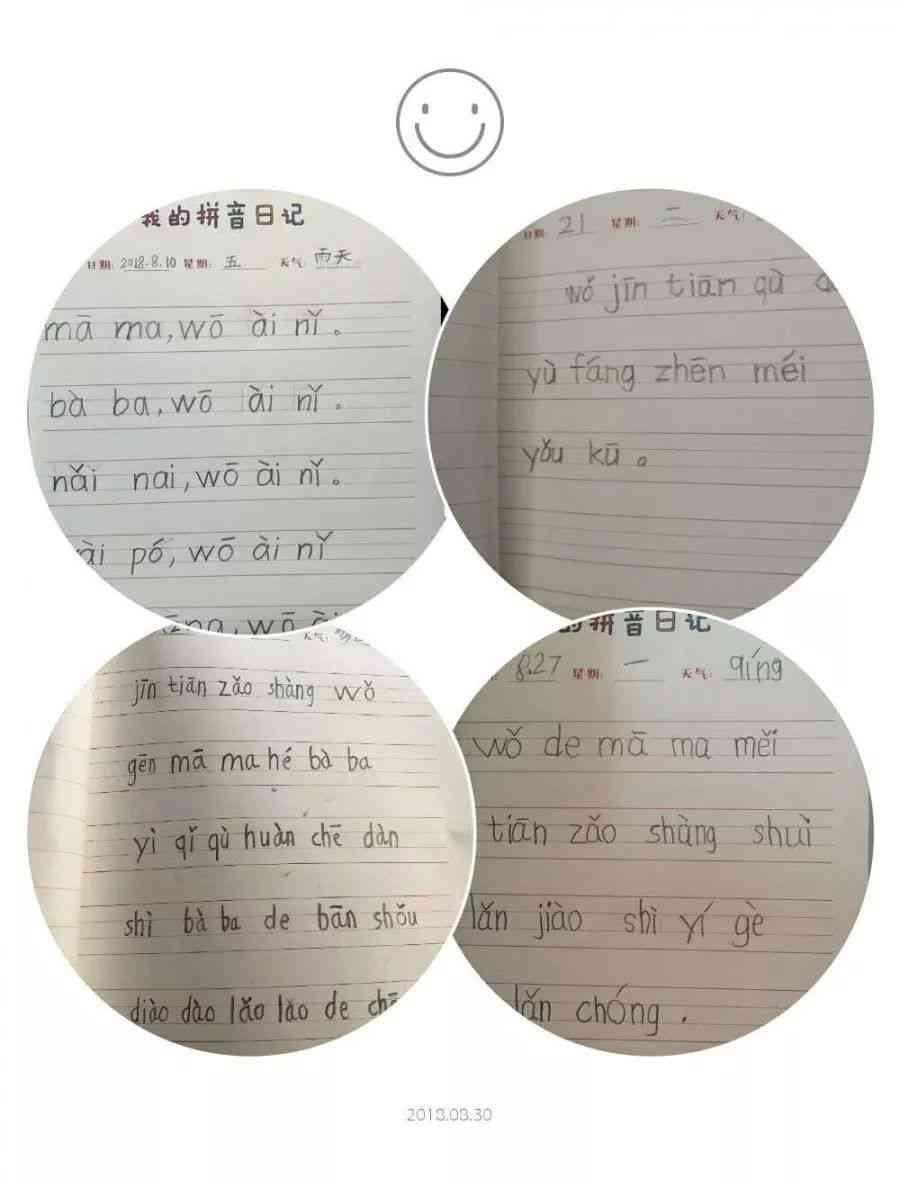 我的拼音日记
日期: 2018.8.10 星期: 五 天气: 雨天
mā ma, wō ài nǐ。
bà ba, wō ài nǐ.
nǎi nai, wō ài nǐ。
ài pó, wō ài nǐ
wō
日期: 21 星期: 二 天气:
wǒ jīn tiān qù
yù fáng zhēn méi
yǒu kū。
天气:
jīn tiān zǎo shàng wǒ
gēn mā ma hé bà ba
yì qǐ qù huàn chē dàn
shì bà ba de bān shǒu
diào dào lǎo lao de
的拼音日记
8.27 星期: 一 天气: qíng
wǒ de mā ma měi
tiān zǎo shàng shuì
lǎn jiào shì yí gè
lǎn chóng.
2018.08.30